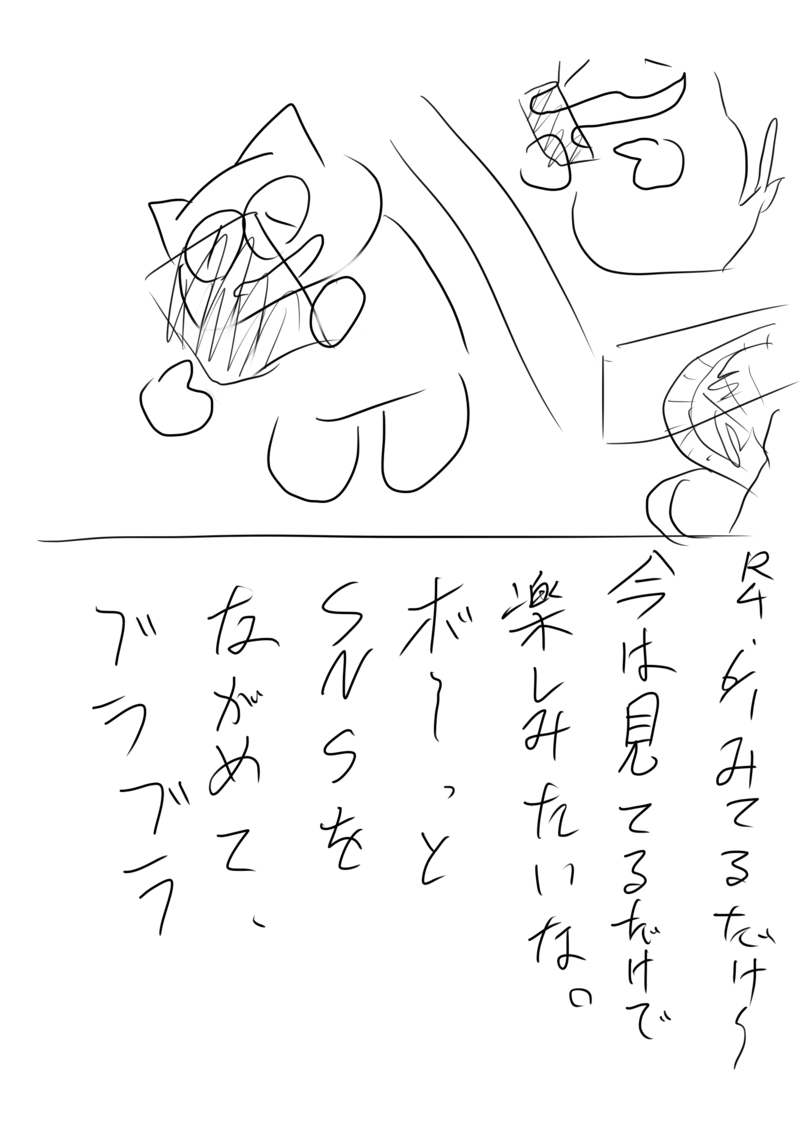 R4.
みてるだけ～
今は見てるだけで
楽しみたいな。
ボ～っと
SNSを
ながめて、
ブラブラ